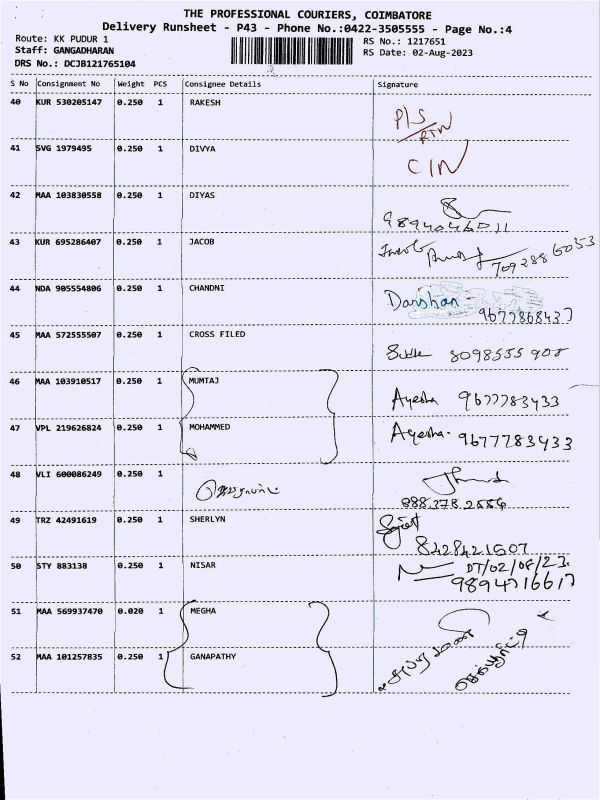 THE PROFESSIONAL COURIERS, COIMBATORE
Delivery Runsheet - P43 - Phone No.:0422-3505555 - Page No.:4
Route: KK PUDUR 1
RS No.: 1217651
Staff: GANGADHARAN
RS Date: 02-Aug-2023
DRS No.: DCJB121765104
S No Consignment No Weight PCS Consignee Details Signature
40 KUR 530205147 0.250 1 RAKESH
P/S
RTN
41 SVG 1979495 0.250 1 DIVYA
C/N
42 MAA 103830558 0.250 1 DIYAS
43 KUR 695286407 0.250 1 JACOB
7092886053
44 NDA 905554806 0.250 1 CHANDNI
Darshan 9677868437
45 MAA 572555507 0.250 1 CROSS FILED
8098555908
46 MAA 103910517 0.250 1 MUMTAJ
Ayesha 9677783433
47 VPL 219626824 0.250 1 MOHAMMED
Ayesha. 9677783433
48 VLI 600086249 0.250 1
49 TRZ 42491619 0.250 1 SHERLYN
8428421607
50 STY 883138 0.250 1 NISAR
DT/02/08/23.
9894716617
51 MAA 569937470 0.020 1 MEGHA
52 MAA 101257835 0.250 1 GANAPATHY